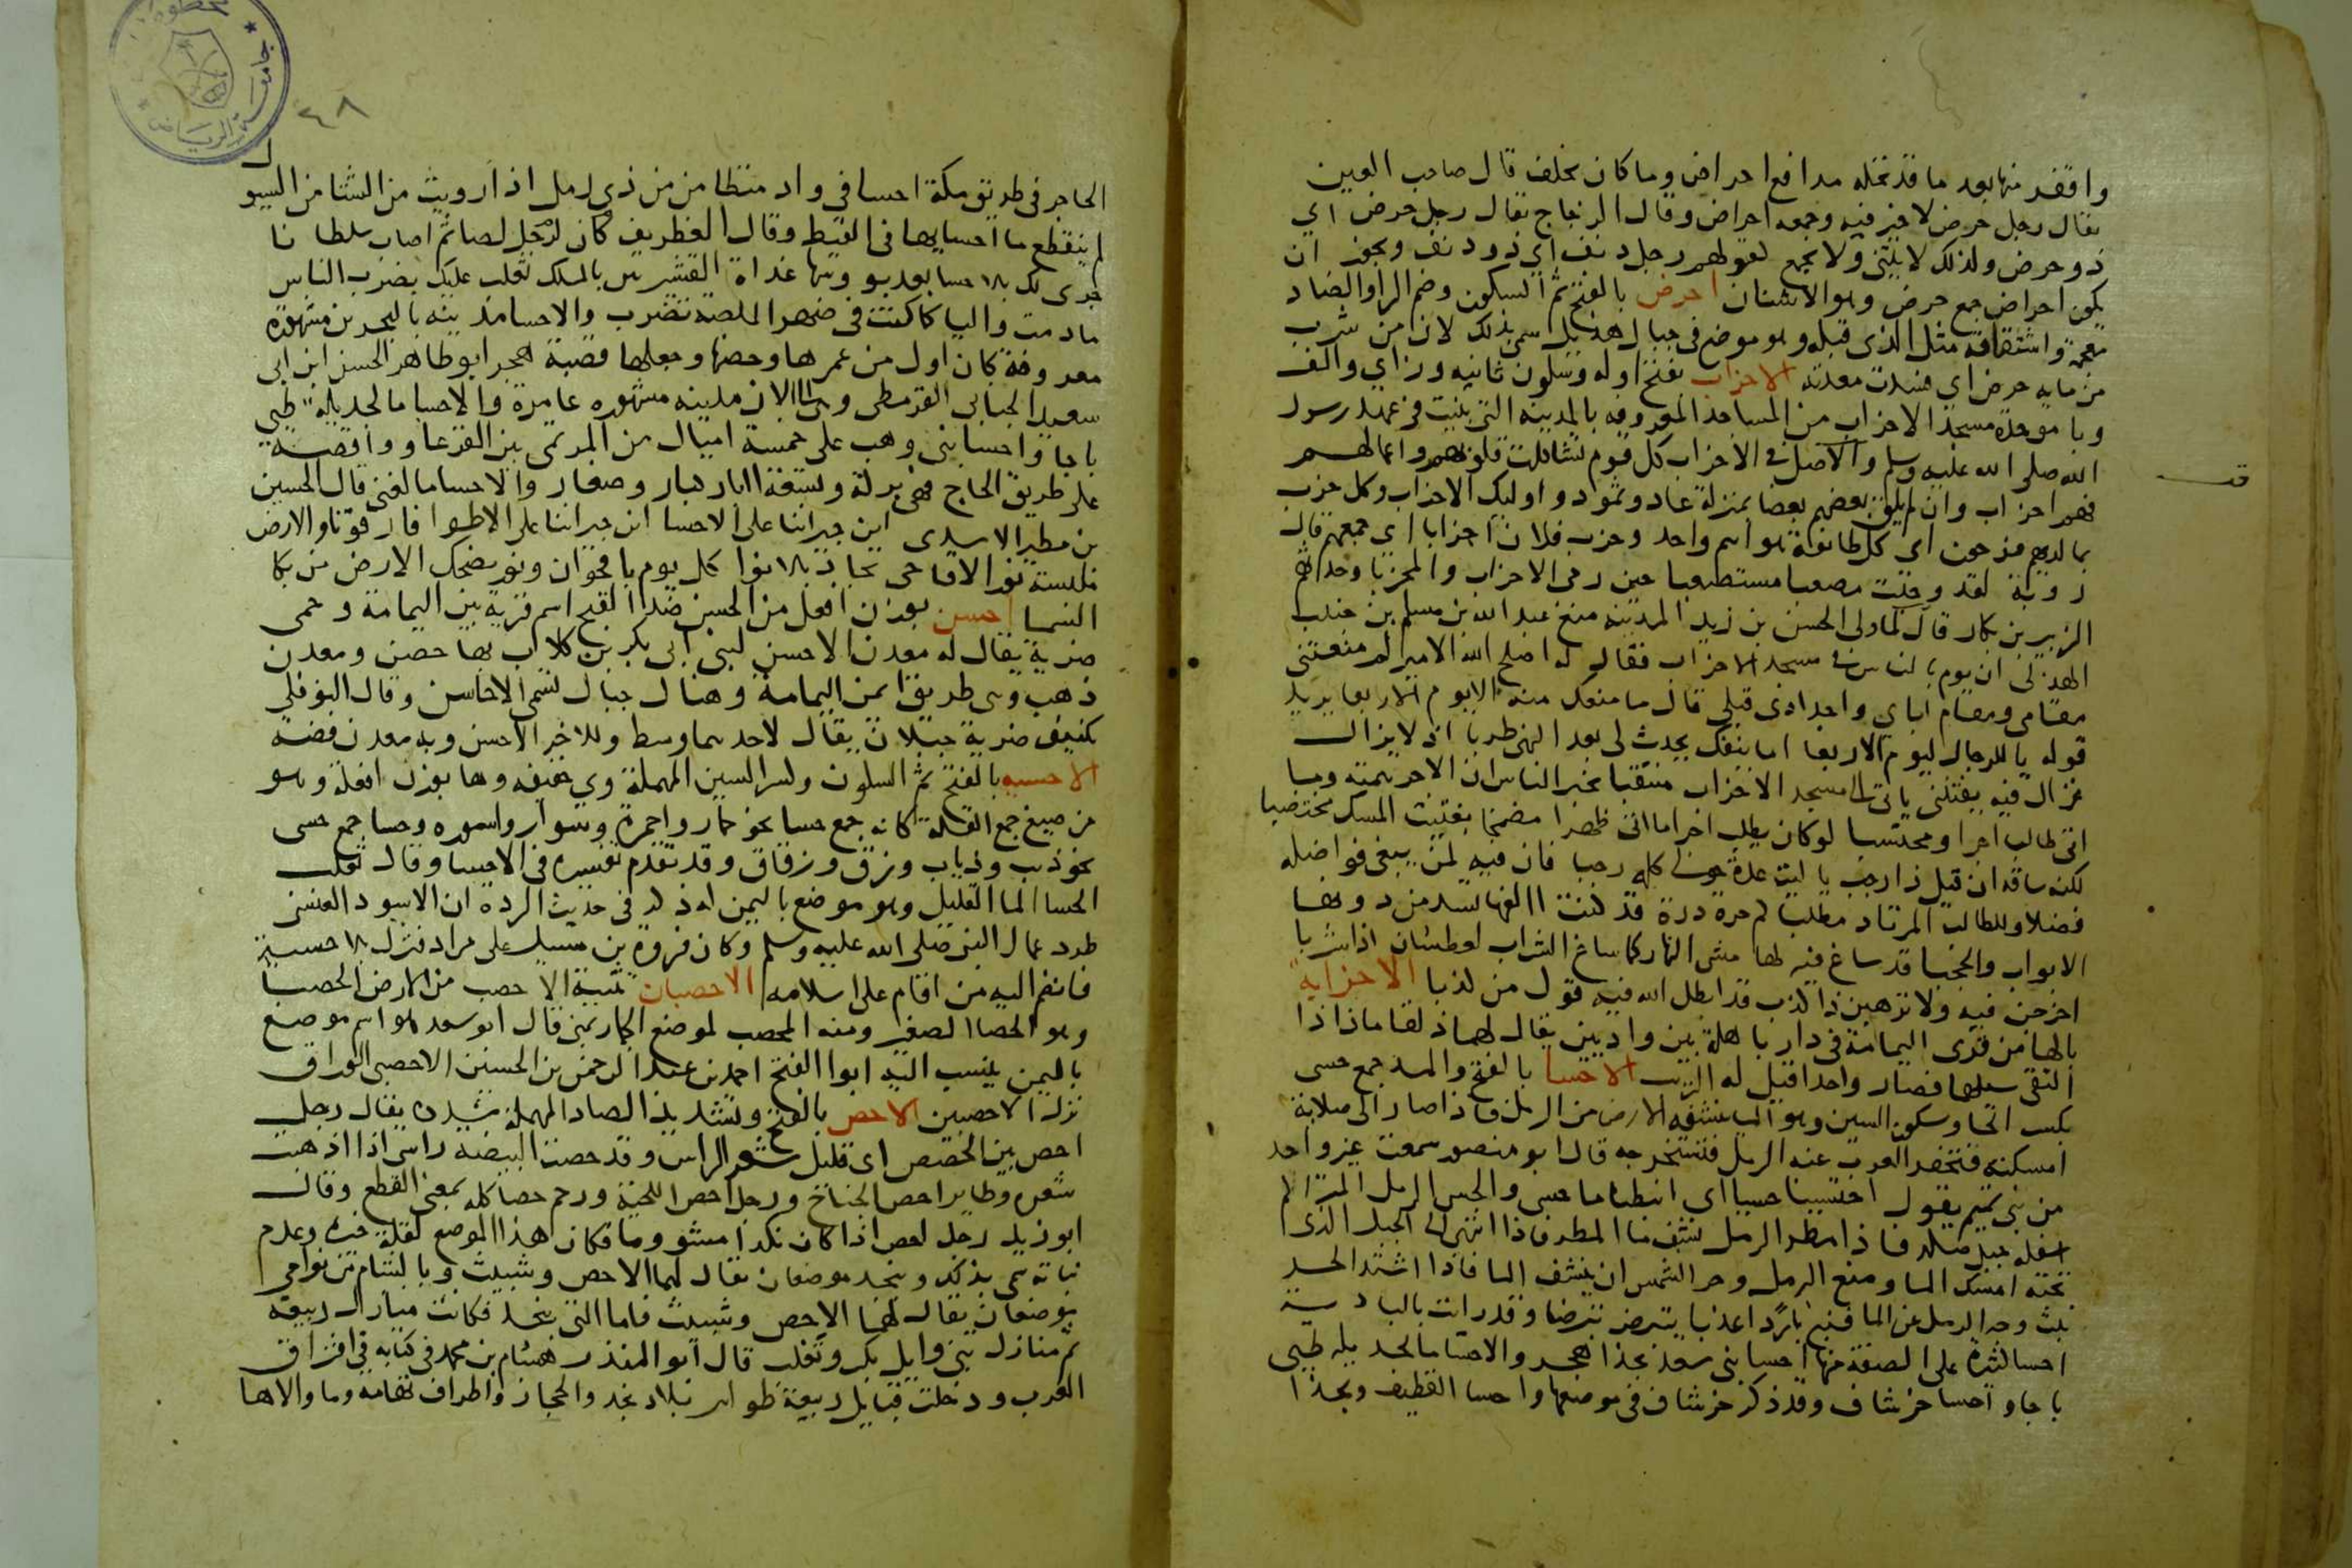 واقفر منها بعد ما قد تحله مدافع احراض وما كان يحلف قال صاحب العين
يقال رجل حرض لا خير فيه وجمعه احراض وقال الزجاج يقال رجل حرض اي
ذو حرض ولذلك لا يثنى ولا يجمع لقولهم رجل دنف اي ذو دنف ويجوز ان
يكون احراض جمع حرض وهو الاشنان احرض بالفتح ثم السكون وضم الرا والضاد
معجمة واشتقاقه مثل الذي قبله وهو موضع في جبال هذيل سمي بذلك لان من شرب
من مايه حرض اي فسدت معدته الاحزاب بفتح اوله وسكون ثانيه وزاي والف
وبا موحدة مسجد الاحزاب من المساجد المعروفه بالمدينه التي بنيت في عهد رسول
الله صلى الله عليه وسلم والاصل في الاحزاب كل قوم تشاكلت قلوبهم واعمالهم
فهم احزاب وان لم يلق بعضهم بعضا بمنزلة عاد وثمود واوليك الاحزاب وكل حزب
بما لديهم فرحون اي كل طائفة هو اسم واحد وحزب فلان احزابا اي جمعهم قال
روبة لقد وجدت مصعبا مستصعبا حين رمى الاحزاب والمحزبا وحدثهم
الزبير بن بكار قال لما ولي الحسن بن زيد المدينه منع عبد الله بن مسلم بن جندب
الهذلي ان يوم بالناس في مسجد الاحزاب فقال له اصلح الله الامير لم منعتني
مقامي ومقام اباي واجدادي قبلي قال ما منعك منه الا يوم الاربعا يريد
قوله يا للرجال ليوم الاربعا اما ينفك يحدث لي بعد النهى طربا اذ لا يزال
غزال فيه يفتنني ياتي الى مسجد الاحزاب منتقبا يخبر الناس ان الاجر همته وما
اتى طالبا اجرا ومحتسبا لو كان يطلب اجرا ما اتى ظهرا مضمخا بفتيت المسك مختضبا
لكنه ساقه ان قيل ذا رجب يا ليت عدة حولي كله رجبا فان فيه لمن يبغي فواضله
فضلا وللطالب المرتاد مطلبا كم حرة درة قد كنت االفها تسد من دونها
الابواب والحجبا قد ساغ فيه لها مشي النهار كما ساغ الشراب لعطشان اذا شربا
اخرجن فيه ولا ترهبن ذا كذب قد ابطل الله فيه قول من كذبا الاحزابه
بالها من قرى اليمامة في دار باهلة بين واديين يقال لهما
التقى سيلهما فصار واحدا قيل له الاحسا بالفتح والمد جمع حسى
بكسر الحا وسكون السين وهو الما ينشفه الارض من الرمل فاذا صار الى صلابة
امسكته فتحفر العرب عنه الرمل فتستخرجه قال ابو منصور سمعت غير واحد
من بني تميم يقول احتسينا حسيا اي انبطنا ما حسى والحسى الرمل المتراكم
اسفله جبل صلد فاذا مطر الرمل نشف ما المطر فاذا انتهى الى الجبل الذي
تحته امسك الما ومنع الرمل وحر الشمس ان ينشف الما فاذا اشتد الحر
نبث وجه الرمل عن الما فنبع باردا عذبا يتبرض تبرضا وقد رايت بالباديه
احسا كثيرة على الصفة منها احسا بني سعد بحذا هجر والاحسا ما لجديله طيى
باجا واحسا خرشاف وقد ذكر خرشاف في موضعها واحسا القطيف وبحذا
الحاجر في طريق مكة احسا في واد متطامن من ذي رمل اذا رويت من الشتا من السيول
لم ينقطع ما احسايها في القيظ وقال الغطريف كان لرجل لصا ثم اصاب سلطانا
جرى لك بالاحسا بعد بوسها غداة القشيريين بالملك تغلب عليك بضرب الناس
ما دمت واليا كما كنت في ضهر الملصه تضرب والاحسا مدينه بالبحرين مشهورة
معروفة كان اول من عمرها وحصنها وجعلها قصبة هجر ابو طاهر الحسن ابن ابي
سعيد الجنابي القرمطي وهي الى الان مدينه مشهوره عامرة والاحسا ما لجديلة طيى
باجا واحسا بني وهب على خمسة اميال من المرتمى بين القرعا وواقصة
على طريق الحاج فيه بركة وتسعة ابار كبار وصغار والاحسا ما لغنى قال الحسين
بن مطير الاسدي اين جيراننا على الاحسا اين جيراننا على الاطوا فارقونا والارض
ملبسة نور الاقاحي تجاد بالانوا كل يوم باقحوان ونور تضحك الارض من بكا
السما احسن بوزن افعل من الحسن ضد القبح اسم قرية بين اليمامة وحمى
ضرية يقال له معدن الاحسن لبني ابي بكر بن كلاب بها حصن ومعدن
ذهب وهي طريق ايمن اليمامة وهناك جبال تسمى الاحاسن وقال النوفلي
يكتنف ضرية جبلان يقال لاحدهما وسط وللاخر الاحسن وبه معدن فضة
الاحسيه بالفتح ثم السكون وكسر السين المهملة وي خفيفه وها بوزن افعلة وهو
من صيغ جمع القلة كانه جمع حسا نحو حمار واحمرة وسوار واسوره وحسا جمع حسى
نحو ذيب وذياب وزق وزقاق وقد تقدم تفسيره في الاحسا وقال ثعلب
الحسا الما القليل وهو موضع باليمن له ذكر في حديث الرده ان الاسود العنسي
طرد عمال النبي صلى الله عليه وسلم وكان فروة بن مسيك على مراد فنزل بالاحسية
فانضم اليه من اقام على اسلامه الاحصبان تثنية الاحصب من الارض الحصبا
وهو الحصا الصغير ومنه المحصب لموضع الجمار بمنى قال ابو سعد هو اسم موضع
باليمن ينسب اليه ابوا الفتح احمد بن عبد الرحمن بن الحسين الاحصبي الوراق
نزل الاحصبين الاحص بالفتح وتشديد الصاد المهملة يقال رجل
احص بين الحصص اي قليل شعر الراس وقد حصت البيضة راسي اذا اذهبت
شعره وطاير احص الجناح ورجل احص اللحية ورحم حصا كله بمعنى القطع وقال
ابو زيد رجل احص اذا كان نكدا مشووما فكان هذا الموضع لقلة خيره وعدم
نباته سمي بذلك وبنجد موضعان يقال لهما الاحص وشبيث وبالشام من نواحي
موضعان يقال لهما الاحص وشبيث فاما التي بنجد فكانت منازل ربيعة
ثم منازل بني وايل بكر وتغلب قال ابو المنذر هشام بن محمد في كتابه في افتراق
العرب ودخلت قبايل ربيعة ظواهر بلاد نجد والحجاز واطراف تهامة وما والاها